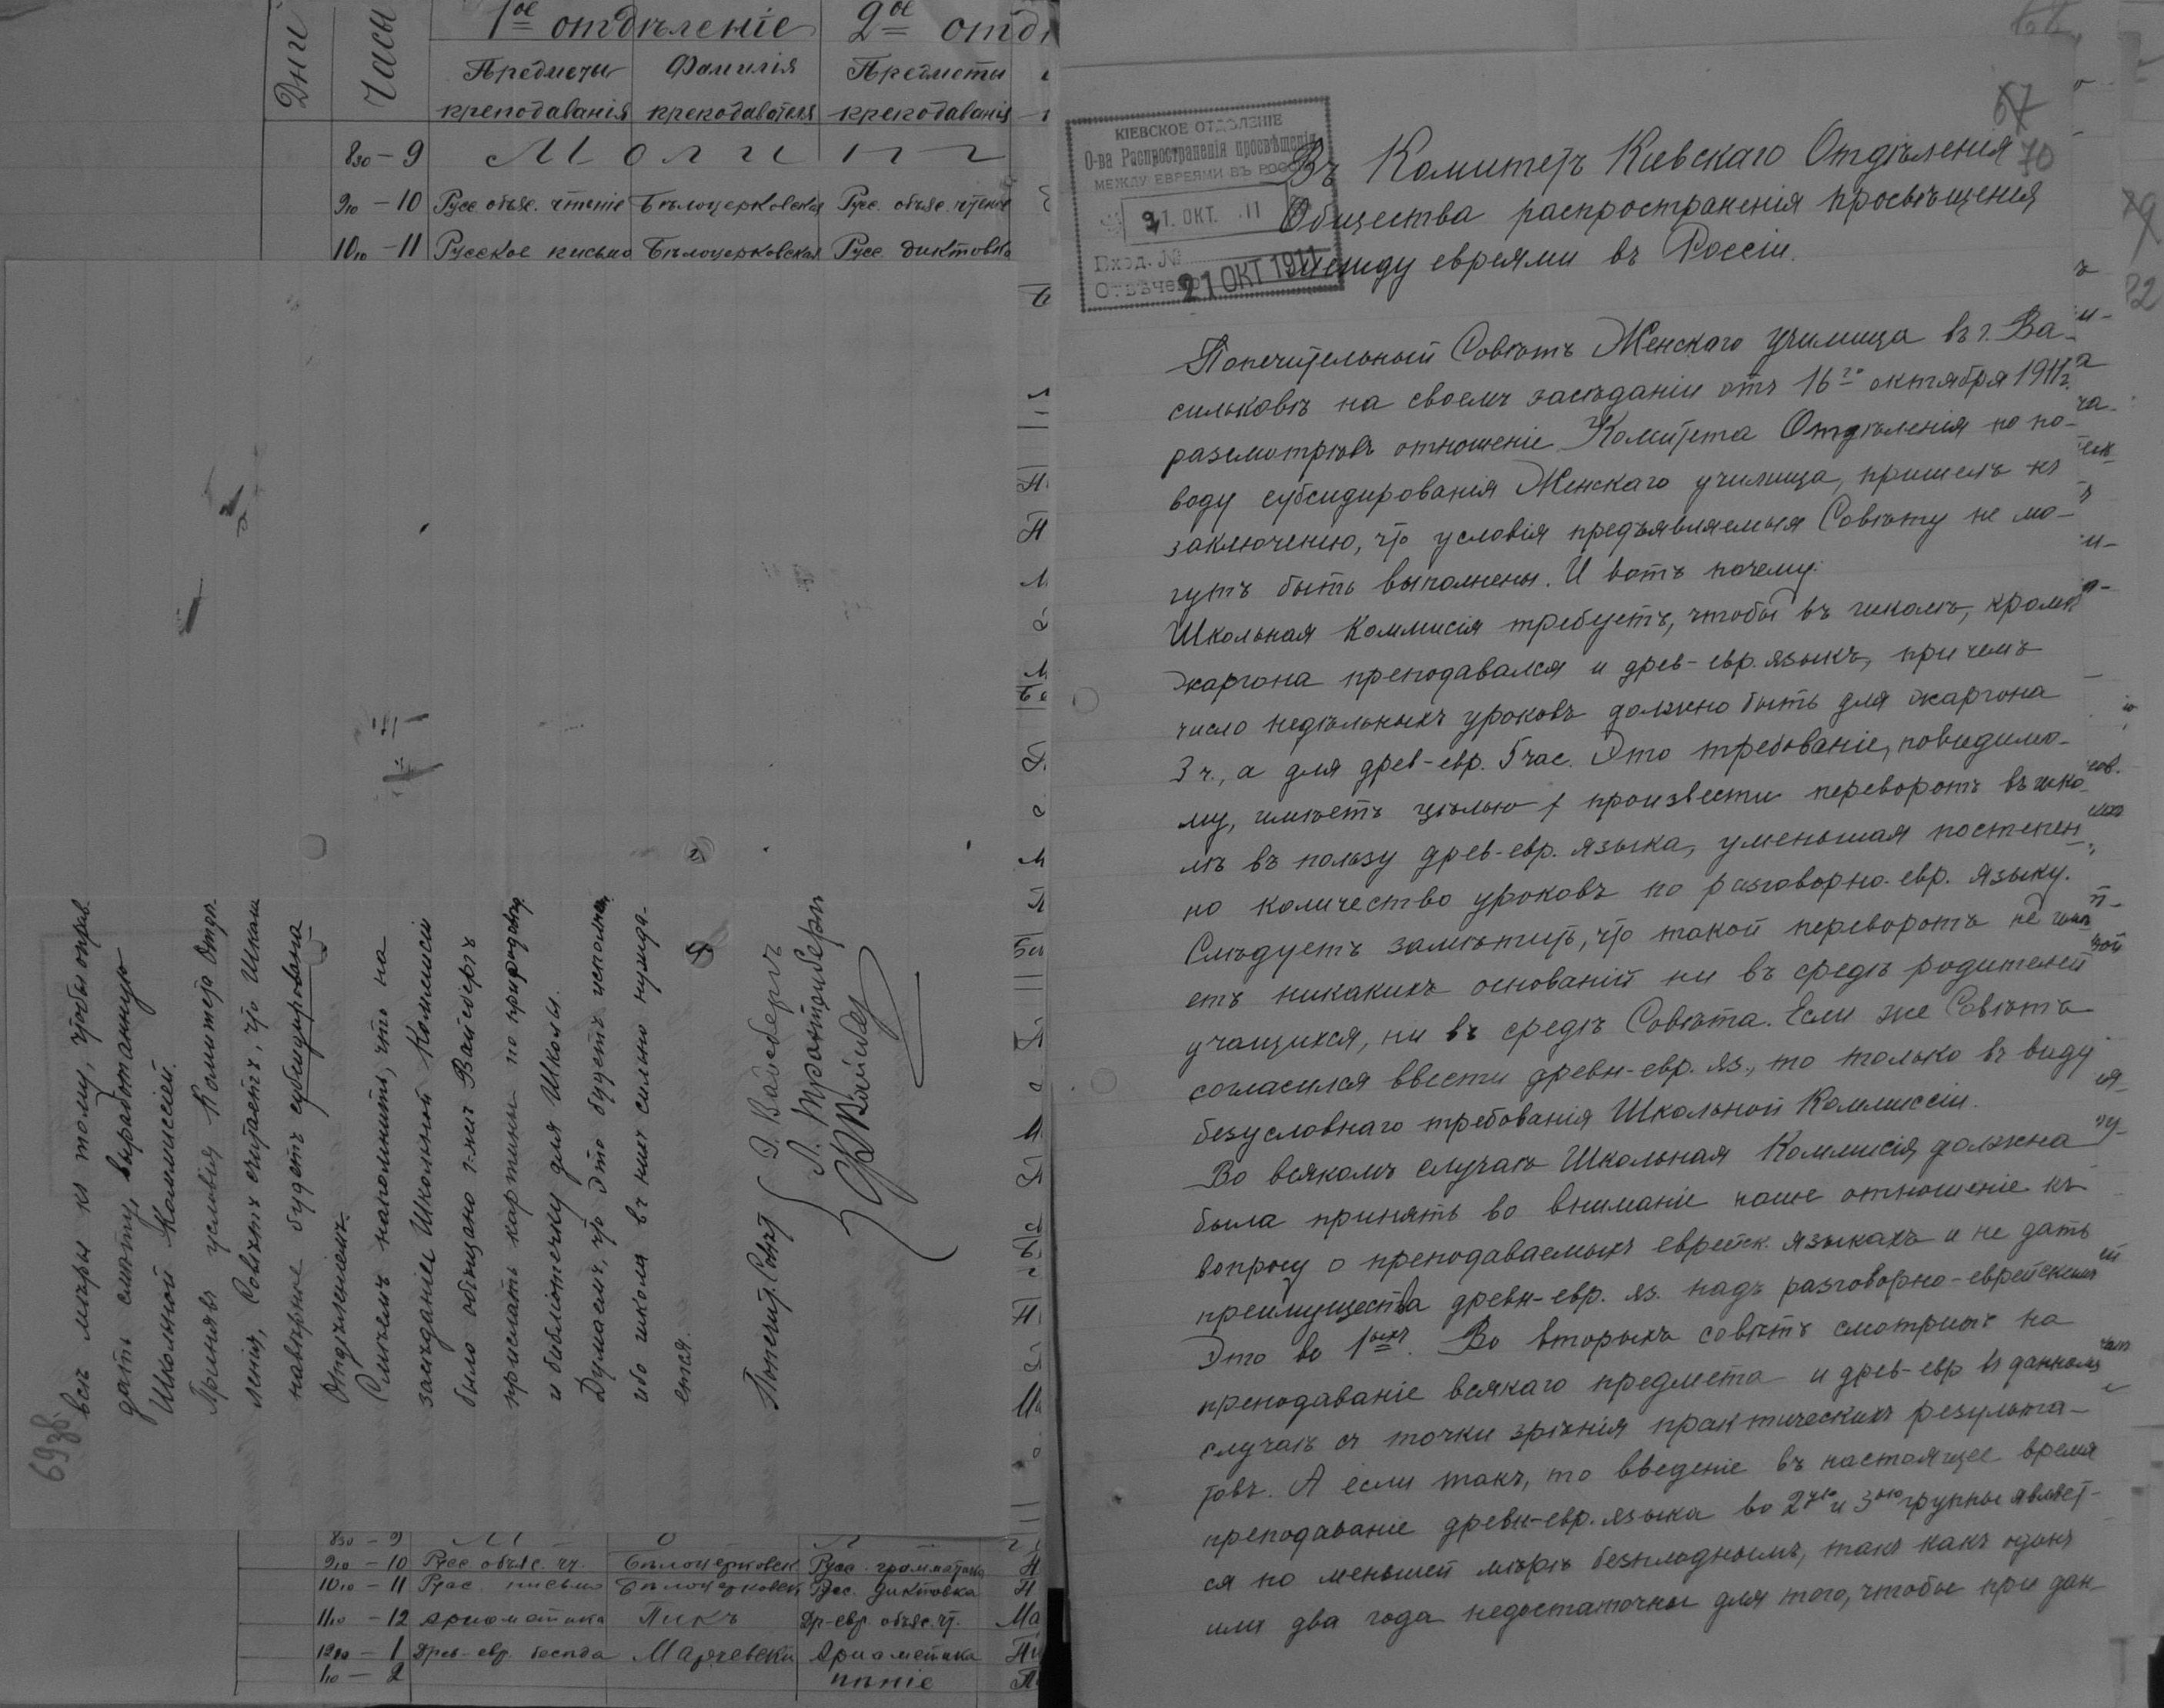 Дни
Часы
1ое отдѣленіе
2ое отд
Предметы
преподаванія
Фамилія
преподавателя
Предметы
преподаванія
8 30 – 9 Молит
9 10 – 10 Русс. объяс. чтеніе Бѣлоцерковская Русс. объяс. чтеніе
10 10 – 11 Русское письмо Бѣлоцерковская Русс. диктовка
69 об.
всѣ мѣры къ тому, чтобы оправ.
дать смѣту, выработанную
Школьной Коммиссіей.
Принявъ условія Комитета Отдѣ-
ленія, Совѣтъ считаетъ, что Школа
навѣрное будетъ субсидирована
Отдѣленіемъ.
Смѣемъ напомнить, что на
засѣданіи Школьной Коммисіи
было обѣщано г-мъ Вайсбергъ
прислать картины по природовѣд.
и библіотечку для Школы.
Думаемъ, что это будетъ исполнен.
ибо школа въ нихъ сильно нужда-
ется.
Попечит. Совѣтъ
8 30 – 9 М о л
9 10 – 10 Русс. объяс. чт. Бѣлоцерковск Русс. грамматика
10 10 – 11 Русс. письмо Бѣлоцерковск Русс. диктовка
11 10 – 12 Ариѳметика Пикъ Др-евр. объяс. чт. Ма
12 10 – 1 Древ-евр. бесѣда Марчевски Ариѳметика
1 10 – 2 пѣніе
67
70
КІЕВСКОЕ ОТДѢЛЕНІЕ
О-ва Распространенія просвѣщенія
МЕЖДУ ЕВРЕЯМИ ВЪ РОССІИ
21. ОКТ. 11
Вход. №
Отвѣчено
21 ОКТ 1911
Въ Комитетъ Кіевскаго Отдѣленія
Общества распространенія просвѣщенія
между евреями въ Россіи.
Попечительный Совѣтъ Женскаго училища въ г. Ва-
сильковѣ на своемъ засѣданіи отъ 16го октября 1911 г.
разсмотрѣвъ отношеніе Комитета Отдѣленія по по-
воду субсидированія Женскаго училища, пришелъ къ
заключенію, что условія предъявляемыя Совѣту не мо-
гутъ быть выполнены. И вотъ почему:
Школьная Коммисія требуетъ, чтобы въ школѣ, кромѣ
жаргона преподавался и древ-евр. языкъ, при чемъ
число недѣльныхъ уроковъ должно быть для жаргона
3 ч., а для древ-евр. 5 час. Это требованіе, повидимо-
му, имѣетъ цѣлью произвести переворотъ въ шко-
лѣ въ пользу древ-евр. языка, уменьшая постепен-
но количество уроковъ по разговорно-евр. языку.
Слѣдуетъ замѣтить, что такой переворотъ не имѣ-
етъ никакихъ основаній ни въ средѣ родителей
учащихся, ни въ средѣ Совѣта. Если же Совѣтъ
согласился ввести древн-евр. яз., то только въ виду
безусловнаго требованія Школьной Коммиссіи.
Во всякомъ случаѣ Школьная Коммисія должна
была принять во вниманіе наше отношеніе къ
вопросу о преподаваемыхъ еврейск. языкахъ и не дать
преимущества древн-евр. яз. надъ разговорно-еврейскимъ
Это во 1ыхъ. Во вторыхъ совѣтъ смотритъ на
преподаваніе всякаго предмета и древ-евр въ данномъ
случаѣ съ точки зрѣнія практическихъ результа-
товъ. А если такъ, то введеніе въ настоящее время
преподаваніе древн-евр. языка во 2ую и 3ью группы являет-
ся по меньшей мѣрѣ безплоднымъ, такъ какъ одинъ
или два года недостаточны для того, чтобы при дан-